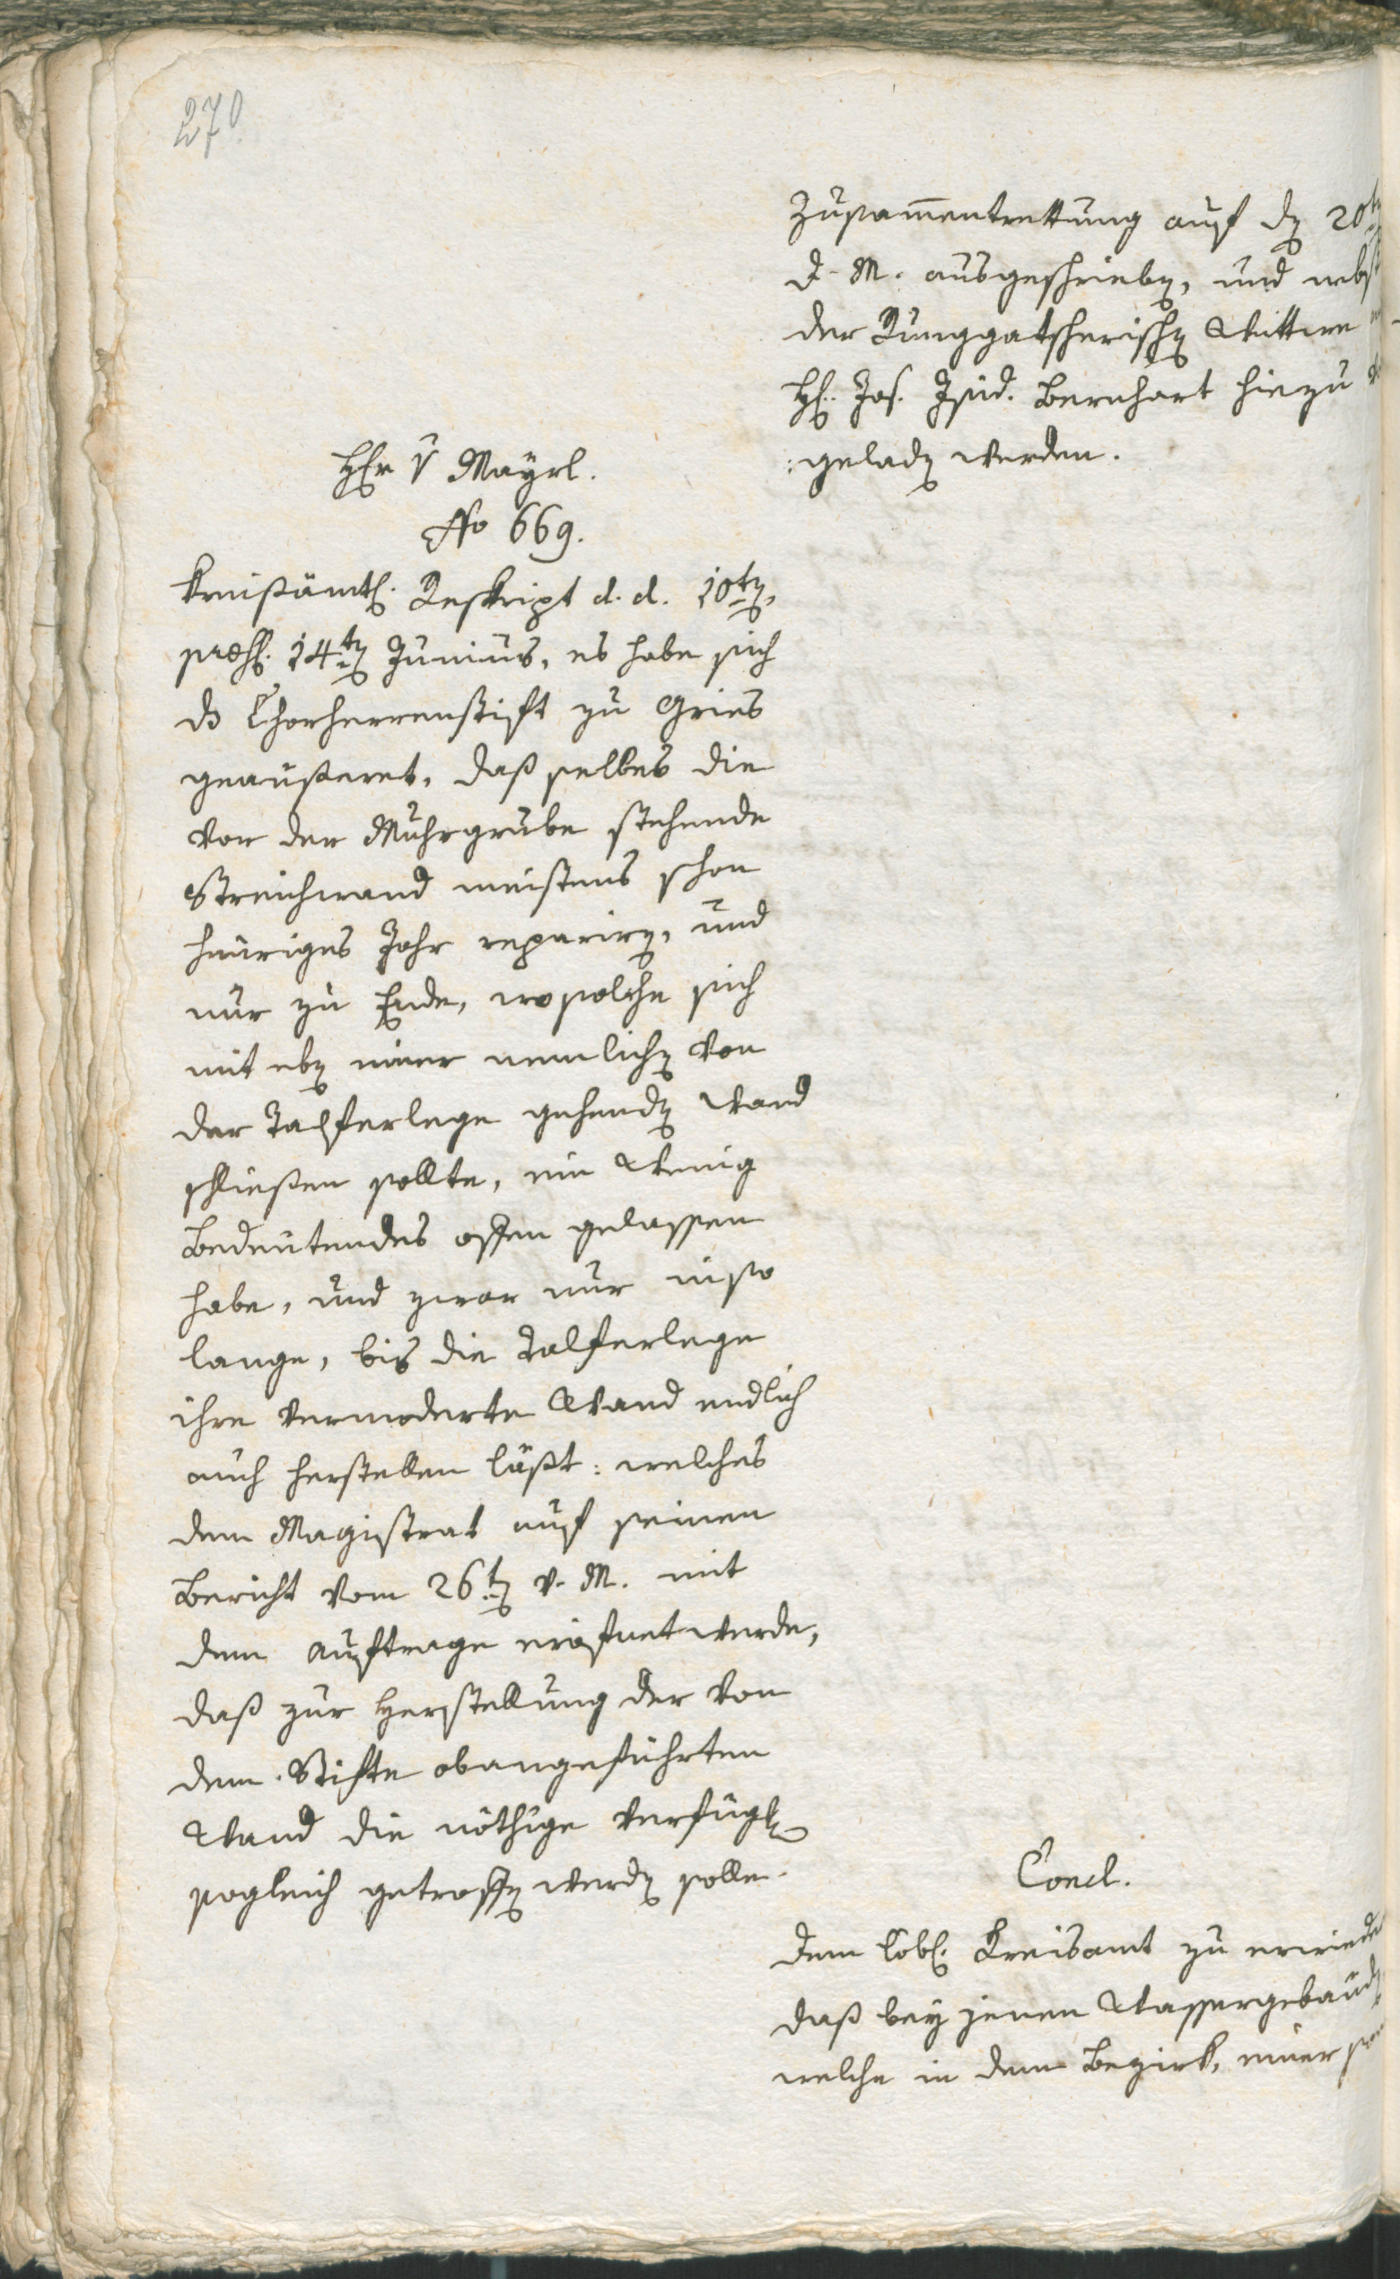 270.
Zusam̅entrettung auf dẽ 20tẽ
d. M. ausgeschriebẽ, und nebst
der Runggatscherischẽ Wittwe
H. Jos. Isid. Bernhart hiezu
geladẽ werden.
Hr v Mayrl.
No 669.
Kreisämtl. Reskript d. d. 10tẽ,
präs. 14tẽ Junius, es habe sich
ds Chorherrenstift zu Gries
geäußeret, daß selbes die
vor der Muhrgrube stehende
Streichwand meistens schon
heuriges Jahr reparirẽ, und
nur zu Ende, wo solche sich
mit ebẽ einer nemlichẽ von
der Talferlege gehendẽ Wand
schließen sollte, ein Wenig
Bedeutendes offen gelassen
habe, und zwar nur in so
lange, bis die Talferlege
ihre vermoderte Wand endlich
auch herstellen läßt: welches
dem Magistrat auf seinen
Bericht vom 26tẽ v. M. mit
dem Auftrage eröfnet werde,
daß zur Herstellung der von
dem Stifte obangeführten
Wand die nöthige Verfügũg
sogleich getroffẽ werdẽ solle.
Concl.
Dem löbl. Kreisamt zu erwiedern
daß bey jenen Wassergebäudẽ
welche in dem Bezirk, einer